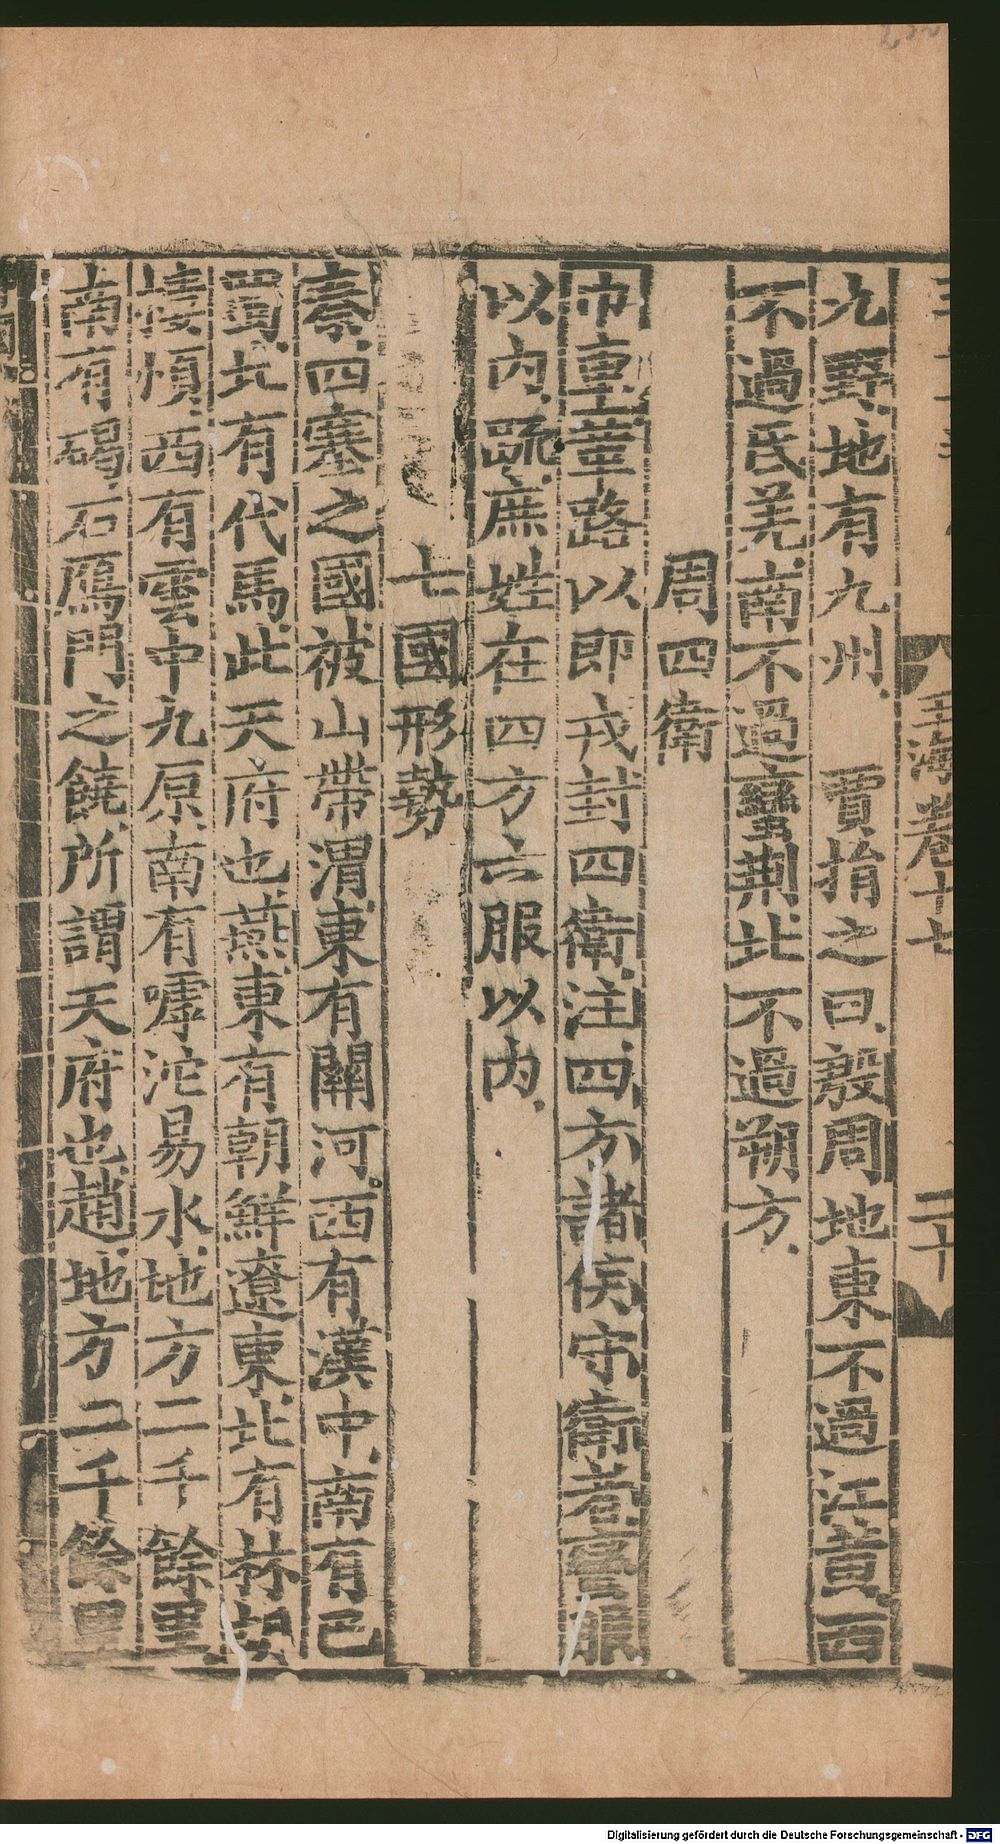 玉海卷十七
二十
九野地有九州 賈捐之曰殷周地東不過江黄西
不過氐羌南不過蠻荆北不過朔方
周四衛
巾車革路以即戎封四衛注四方諸侯守衛者蠻服
以内疏庶姓在四方六服以内
七國形勢
秦四塞之國被山帶渭東有關河西有漢中南有巴
蜀北有代馬此天府也燕東有朝鮮遼東北有林胡
樓煩西有雲中九原南有嘑沱易水地方二千餘里
南有碣石鴈門之饒所謂天府也趙地方二千餘里
Digitalisierung gefördert durch die Deutsche Forschungsgemeinschaft - DFG